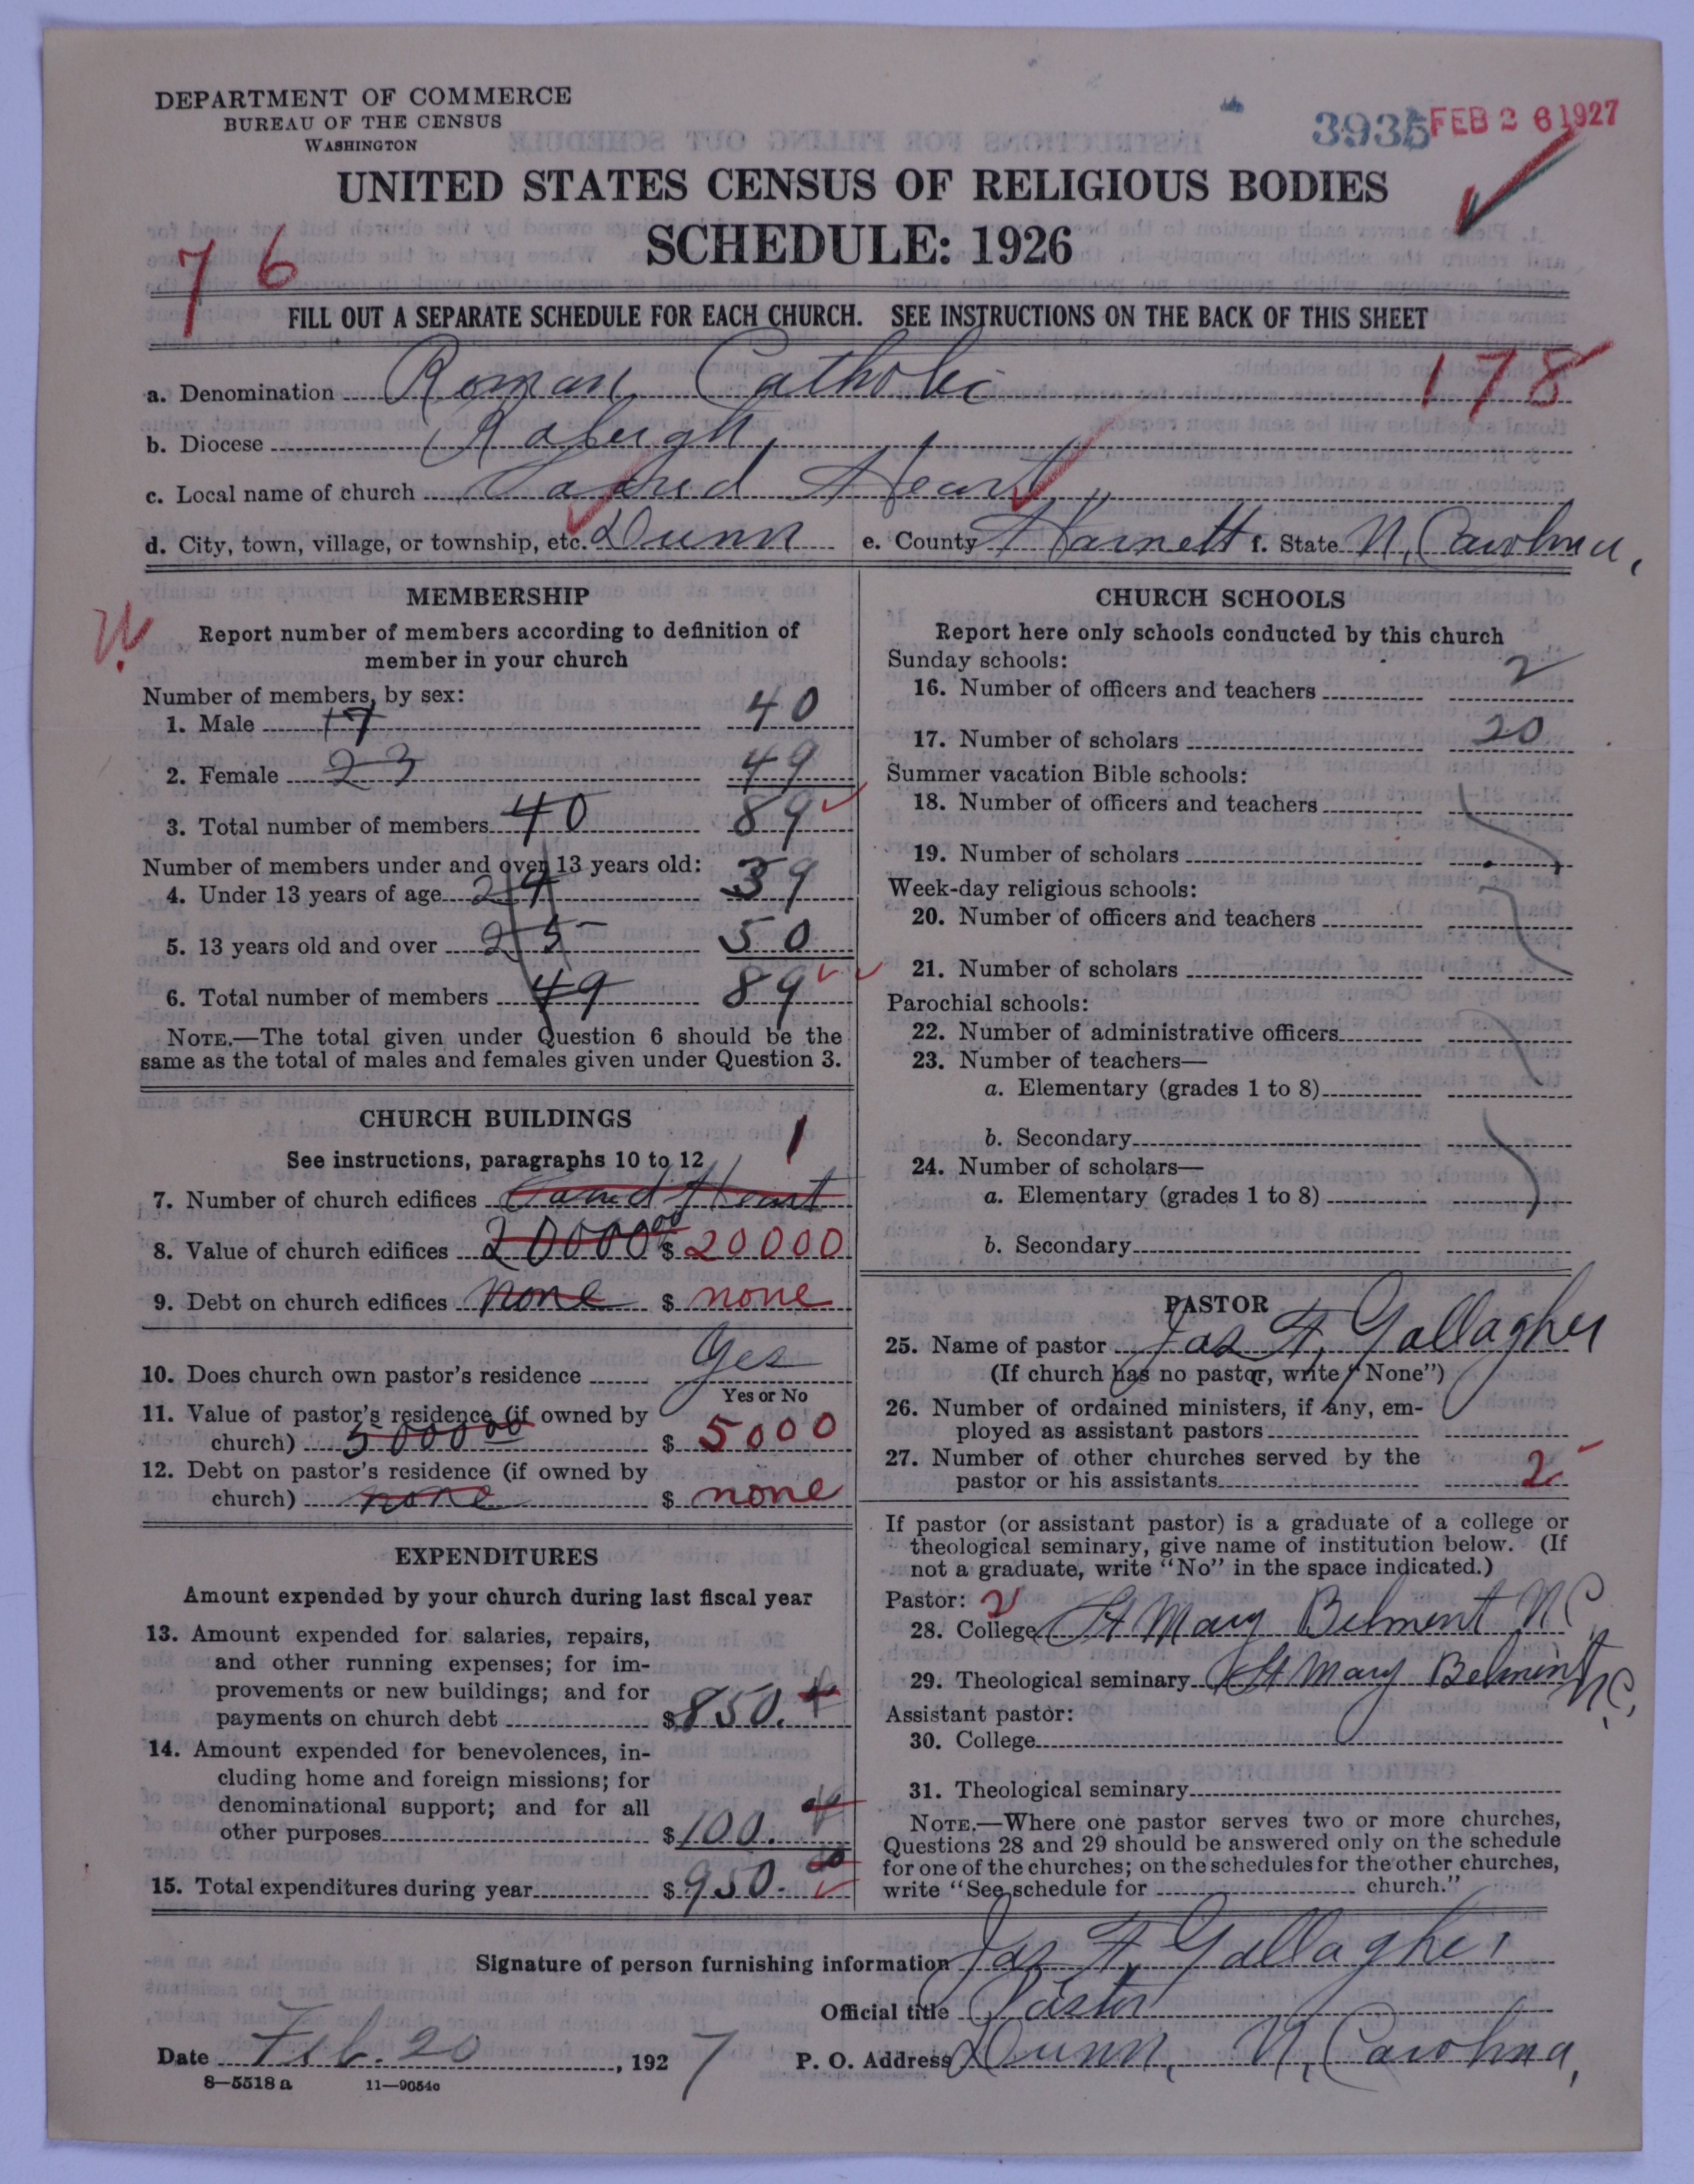 DEPARTMENT OF COMMERCE
BUREAU OF THE CENSUS
WASHINGTON
3935 FEB 26 1927
UNITED STATES CENSUS OF RELIGIOUS BODIES
SCHEDULE: 1926
76
FILL OUT A SEPARATE SCHEDULE FOR EACH CHURCH. SEE INSTRUCTIONS ON THE BACK OF THIS SHEET
178
a. Denomination Roman Catholic
b. Diocese Raleigh
c. Local name of church Sacred Heart
d. City, town, village, or township, etc. Dunn e. County Harnett f. State N. Carolina,
MEMBERSHIP
Report number of members according to definition of
member in your church
Number of members, by sex:
1. Male 17 40
2. Female 23 49
3. Total number of members 40 89
Number of members under and over 13 years old:
4. Under 13 years of age 24 39
5. 13 years old and over 25 50
6. Total number of members 49 89
NOTE.—The total given under Question 6 should be the
same as the total of males and females given under Question 3.
CHURCH BUILDINGS
See instructions, paragraphs 10 to 12
1
7. Number of church edifices Sacred Heart
8. Value of church edifices 20000 00 $ 20000
9. Debt on church edifices none $ none
10. Does church own pastor's residence Yes
Yes or No
11. Value of pastor's residence (if owned by
church) 5000 00 $ 5000
12. Debt on pastor's residence (if owned by
church) none $ none
EXPENDITURES
Amount expended by your church during last fiscal year
13. Amount expended for salaries, repairs,
and other running expenses; for im-
provements or new buildings; and for
payments on church debt $ 850.
14. Amount expended for benevolences, in-
cluding home and foreign missions; for
denominational support; and for all
other purposes $ 100.
15. Total expenditures during year $ 950. 00
CHURCH SCHOOLS
Report here only schools conducted by this church
Sunday schools:
16. Number of officers and teachers 2
17. Number of scholars 20
Summer vacation Bible schools:
18. Number of officers and teachers
19. Number of scholars
Week-day religious schools:
20. Number of officers and teachers
21. Number of scholars
Parochial schools:
22. Number of administrative officers
23. Number of teachers—
a. Elementary (grades 1 to 8)
b. Secondary
24. Number of scholars—
a. Elementary (grades 1 to 8)
b. Secondary
PASTOR
25. Name of pastor Jas F. Gallagher
(If church has no pastor, write "None")
26. Number of ordained ministers, if any, em-
ployed as assistant pastors
27. Number of other churches served by the
pastor or his assistants 2
If pastor (or assistant pastor) is a graduate of a college or
theological seminary, give name of institution below. (If
not a graduate, write "No" in the space indicated.)
Pastor: 2
28. College St Mary Belmont N C
29. Theological seminary St Mary Belmont N.C.
Assistant pastor:
30. College
31. Theological seminary
NOTE.—Where one pastor serves two or more churches,
Questions 28 and 29 should be answered only on the schedule
for one of the churches; on the schedules for the other churches,
write "See schedule for church."
Signature of person furnishing information Jas F. Gallagher
Official title Pastor
Date Feb. 20, 1927 P. O. Address Dunn, N. Carolina,
8—5518 a 11—9054c